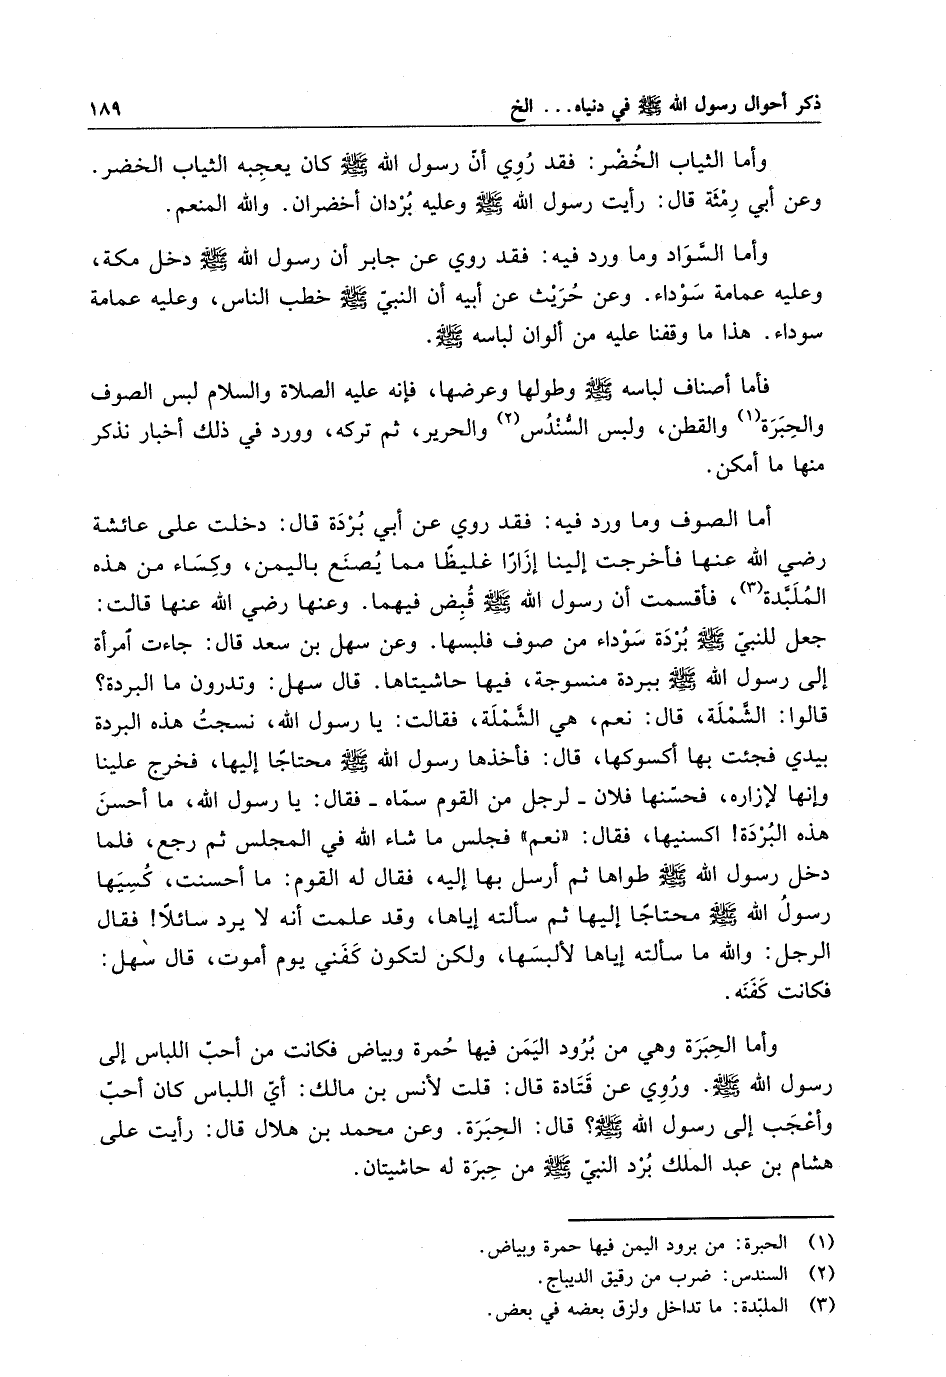 ذكر أحوال رسول الله ﷺ في دنياه... الخ ١٨٩
وأما الثياب الخُضْر: فقد رُوِي أنّ رسول الله ﷺ كان يعجِبه الثياب الخضر.
وعن أبي رِمْثَة قال: رأيت رسول الله ﷺ وعليه بُرْدان أخضران. والله المنعم.
وأما السَّوَاد وما ورد فيه: فقد روي عن جابر أن رسول الله ﷺ دخل مكة،
وعليه عمامة سَوْداء. وعن حُرَيْث عن أبيه أن النبيّ ﷺ خطب الناس، وعليه عمامة
سوداء. هذا ما وقفنا عليه من ألوان لباسه ﷺ.
فأما أصناف لباسه ﷺ وطولها وعرضها، فإنه عليه الصلاة والسلام لبس الصوف
والحِبَرَة(١) والقطن، ولبس السُّنْدُس(٢) والحرير، ثم تركه، وورد في ذلك أخبار نذكر
منها ما أمكن.
أما الصوف وما ورد فيه: فقد روي عن أبي بُرْدَة قال: دخلت على عائشة
رضي الله عنها فأخرجت إلينا إزَارًا غليظًا مما يُصنَع باليمن، وكِسَاء من هذه
المُلَبَّدة(٣)، فأقسمت أن رسول الله ﷺ قُبِض فيهما. وعنها رضي الله عنها قالت:
جعل للنبيّ ﷺ بُرْدَة سَوْداء من صوف فلبسها. وعن سهل بن سعد قال: جاءت ٱمرأة
إلى رسول الله ﷺ ببردة منسوجة، فيها حاشيتاها. قال سهل: وتدرون ما البردة؟
قالوا: الشَّمْلَة، قال: نعم، هي الشَّمْلَة، فقالت: يا رسول الله، نسجتُ هذه البردة
بيدي فجئت بها أكسوكها، قال: فأخذها رسول الله ﷺ محتاجًا إليها، فخرج علينا
وإنها لإزاره، فحسّنها فلان ـ لرجل من القوم سمّاه ـ فقال: يا رسول الله، ما أحسنَ
هذه البُرْدَة! اكسنيها، فقال: «نعم» فجلس ما شاء الله في المجلس ثم رجع، فلما
دخل رسول الله ﷺ طواها ثم أرسل بها إليه، فقال له القوم: ما أحسنت، كُسِيَها
رسولُ الله ﷺ محتاجًا إليها ثم سألته إياها، وقد علمت أنه لا يرد سائلًا! فقال
الرجل: والله ما سألته إياها لألبسَها، ولكن لتكون كَفَني يوم أموت، قال سهل:
فكانت كَفَنَه.
وأما الحِبَرَة وهي من بُرُود اليَمَن فيها حُمرة وبياض فكانت من أحبّ اللباس إلى
رسول الله ﷺ. ورُوِي عن قَتَادة قال: قلت لأنس بن مالك: أيّ اللباس كان أحبّ
وأعْجَب إلى رسول الله ﷺ؟ قال: الحِبَرَة. وعن محمد بن هلال قال: رأيت على
هشام بن عبد الملك بُرْد النبيّ ﷺ من حِبرَة له حاشيتان.
(١) الحبرة: من برود اليمن فيها حمرة وبياض.
(٢) السندس: ضرب من رقيق الديباج.
(٣) الملبّدة: ما تداخل ولزق بعضه في بعض.